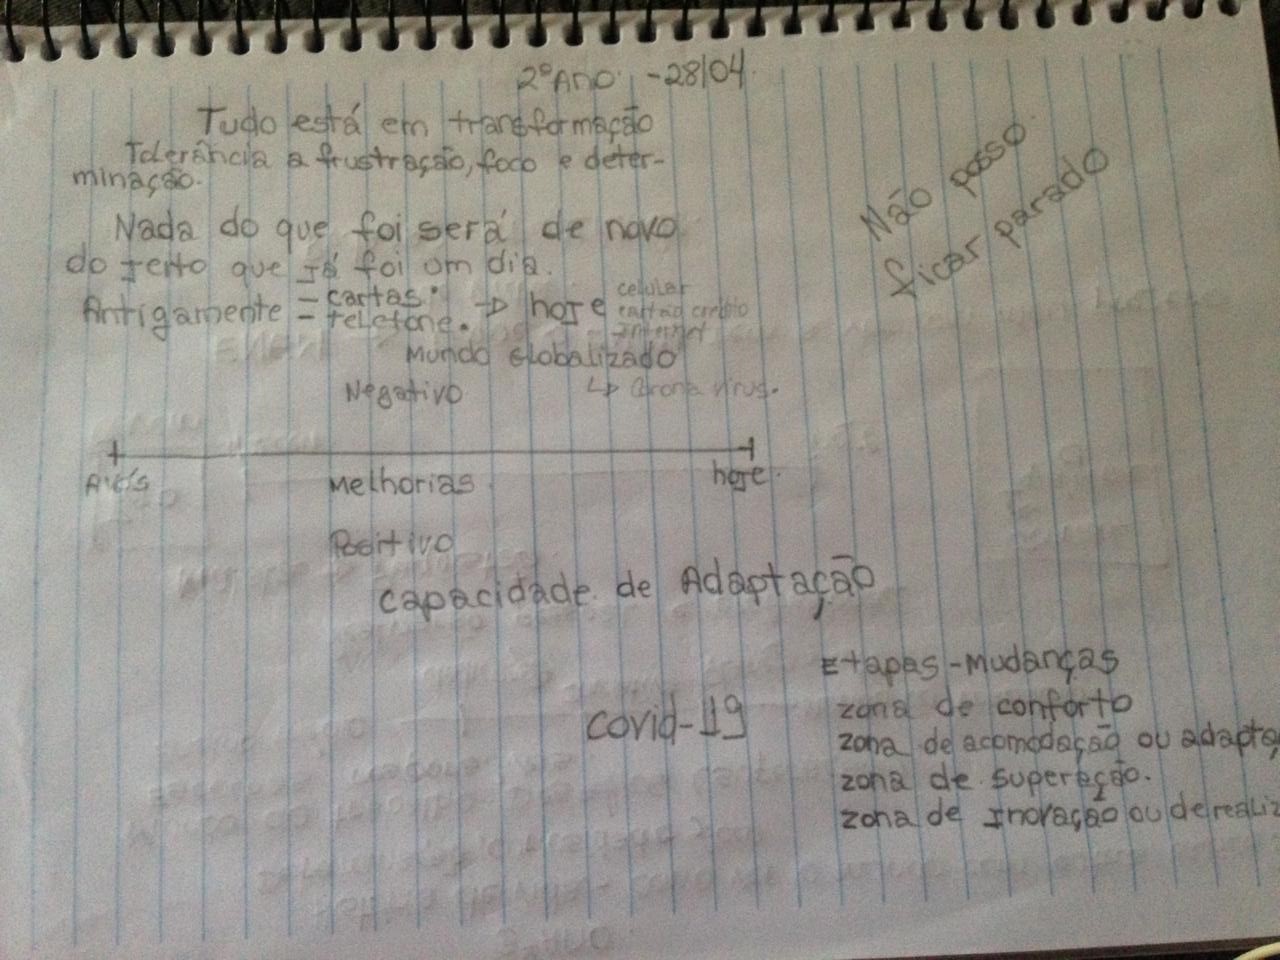 2º Ano - 28/04
Tudo está em transformação
Tolerância a frustração, foco e deter-
minação.
Não posso
ficar parado
Nada do que foi será de novo
do jeito que já foi um dia.
Antigamente - cartas. → hoje celular
- telefone. cartão credito
- Internet
Mundo Globalizado
Negativo ↳ Corona vírus.
hoje.
Melhorias
Positivo
Capacidade de Adaptação
Etapas - mudanças
covid-19
zona de conforto
zona de acomodação ou adapta
zona de superação.
zona de Inovação ou de realiz